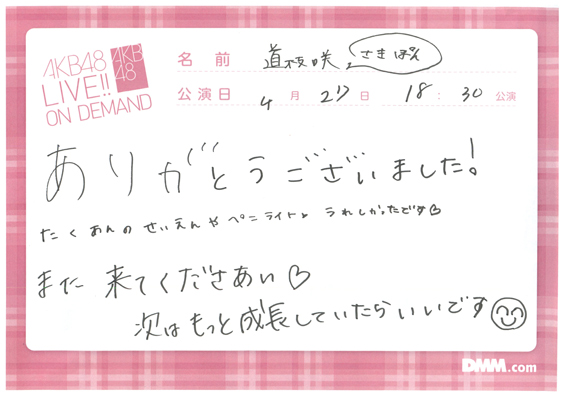 AKB48
LIVE!!
ON DEMAND
AKB
48
名前 道枝咲 さきぽん
公演日 4月27日 18:30公演
ありがとうございました!
たくあんのせいえんやペンライト、うれしかったです♡
また来てくださあい♡
次はもっと成長していたらいいです
DMM.com